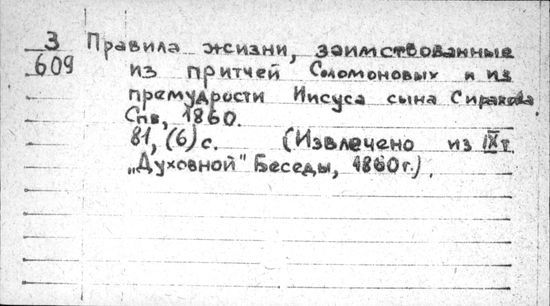 3
609
Правила жизни, заимствованные
из притчей Соломоновых и из
премудрости Иисуса сына Сирахова.
Спв, 1860.
81, (6) с. (Извлечено из IX т.
„Духовной" Беседы, 1860 г.).